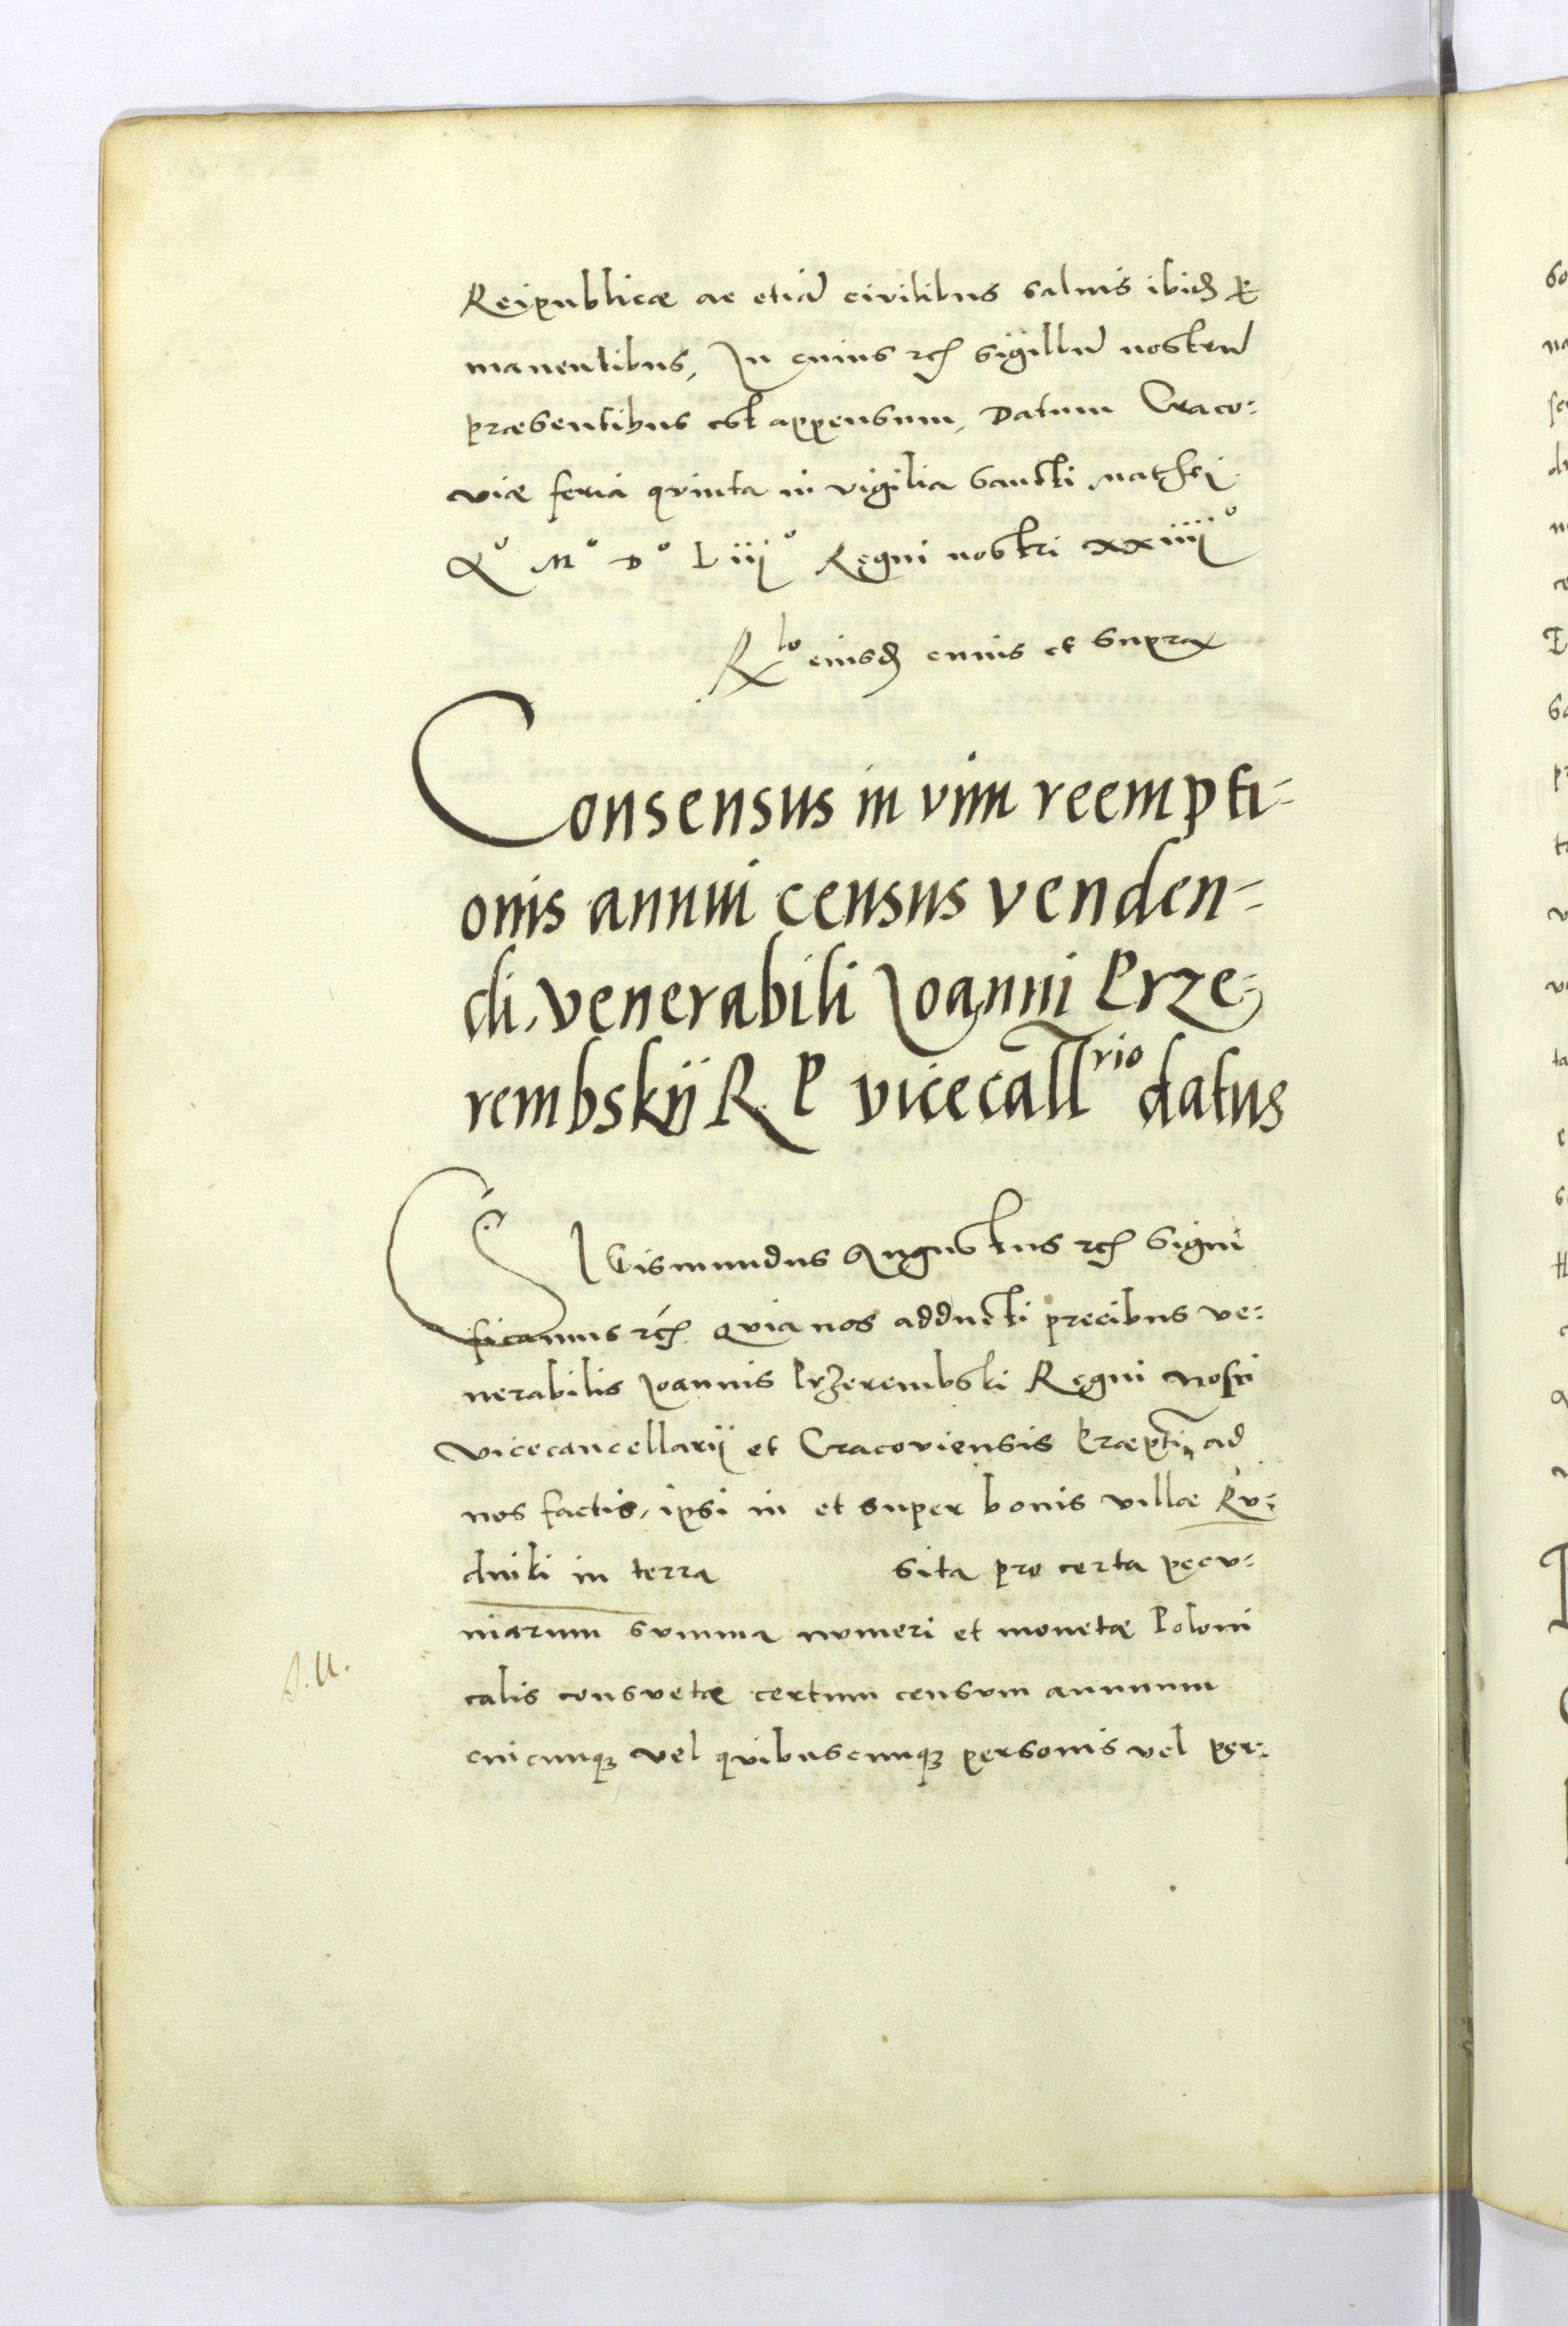 Reipublicæ ac etiā civilibus salvis ibidē per
manentibus, In cuius rei sigillū nostrū
præsentibus est appensum, Datum Craco:
viæ feria qvinta in vigilia Sancti Mathei
Aº Mº Dº Liiijº Regni nostri xxiiiijº
Rlo eiusdē cuius et supra
Consensus in vim reempti-
onis annui census venden-
di, venerabili Ioanni Prze-
rembskij R P vicecallrio datus
SIGismundus Augustus etc Signi
ficamus etc. Qvia nos adducti precibus ve:
nerabilis Ioannis Przerembski Regni nosri
vicecancellarij et Cracoviensis Præpti, ad
nos factis, ipsi in et super bonis villæ Ru:
dniki in terra sita pro certa pecu:
niarum summa numeri et monetæ Poloni
calis consvetæ certum censum annuum
cuicunqȝ vel qvibuscunqȝ personis vel per: